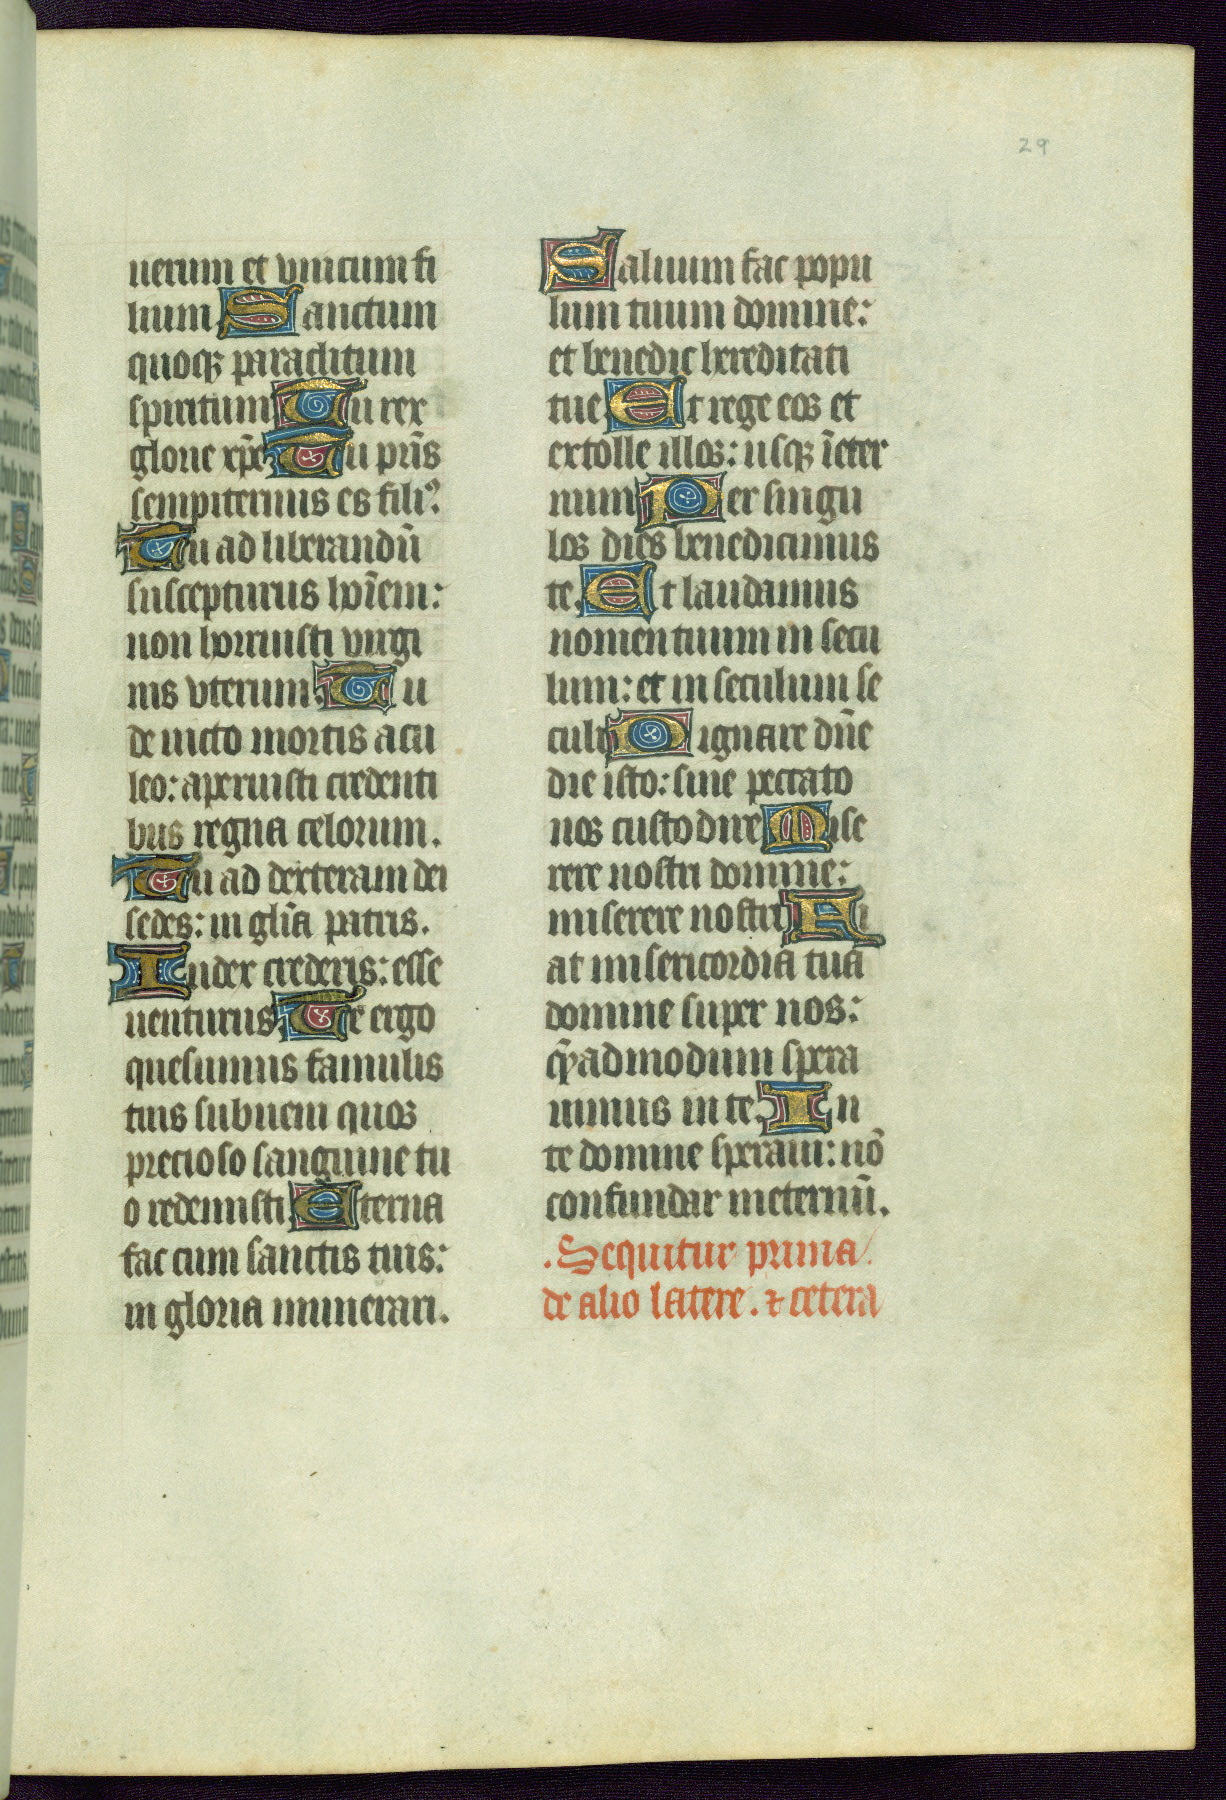 29
uerum et vnicum fi
lium Sanctum
quoqꝫ paraclitum
spiritum Tu rex
glorie xp̄e Tu pr̄is
sempiternus es filiꝰ.
Tu ad liberandū
suscepturus hoīem:
non horruisti virgi
nis vterum. Tu
de uicto mortis acu
leo: aperuisti credenti
bus regna celorum.
Tu ad dexteram dei
sedes: in gl̄ia patris.
Iudex crederis: esse
uenturus Te ergo
quesumus famulis
tuis subueni quos
precioso sanguine tu
o redemisti Eterna
fac cum sanctis tuis:
in gloria munerari.
Saluum fac popu
lum tuum domine:
et benedic hereditati
tue Et rege eos et
extolle illos: usqꝫ īeter
num Per singu
los dies benedicimus
te. Et laudamus
nomen tuum in secu
lum: et in seculum se
culi Dignare dn̄e
die isto: sine peccato
nos custodire Mise
rere nostri domine:
miserere nostri Fi
at misericordia tua
domine super nos:
qȳadmodum spera
uimus in te. In
te domine speraui: nō
confundar ineternū.
. Sequitur prima
de alio latere. ⁊ cetera